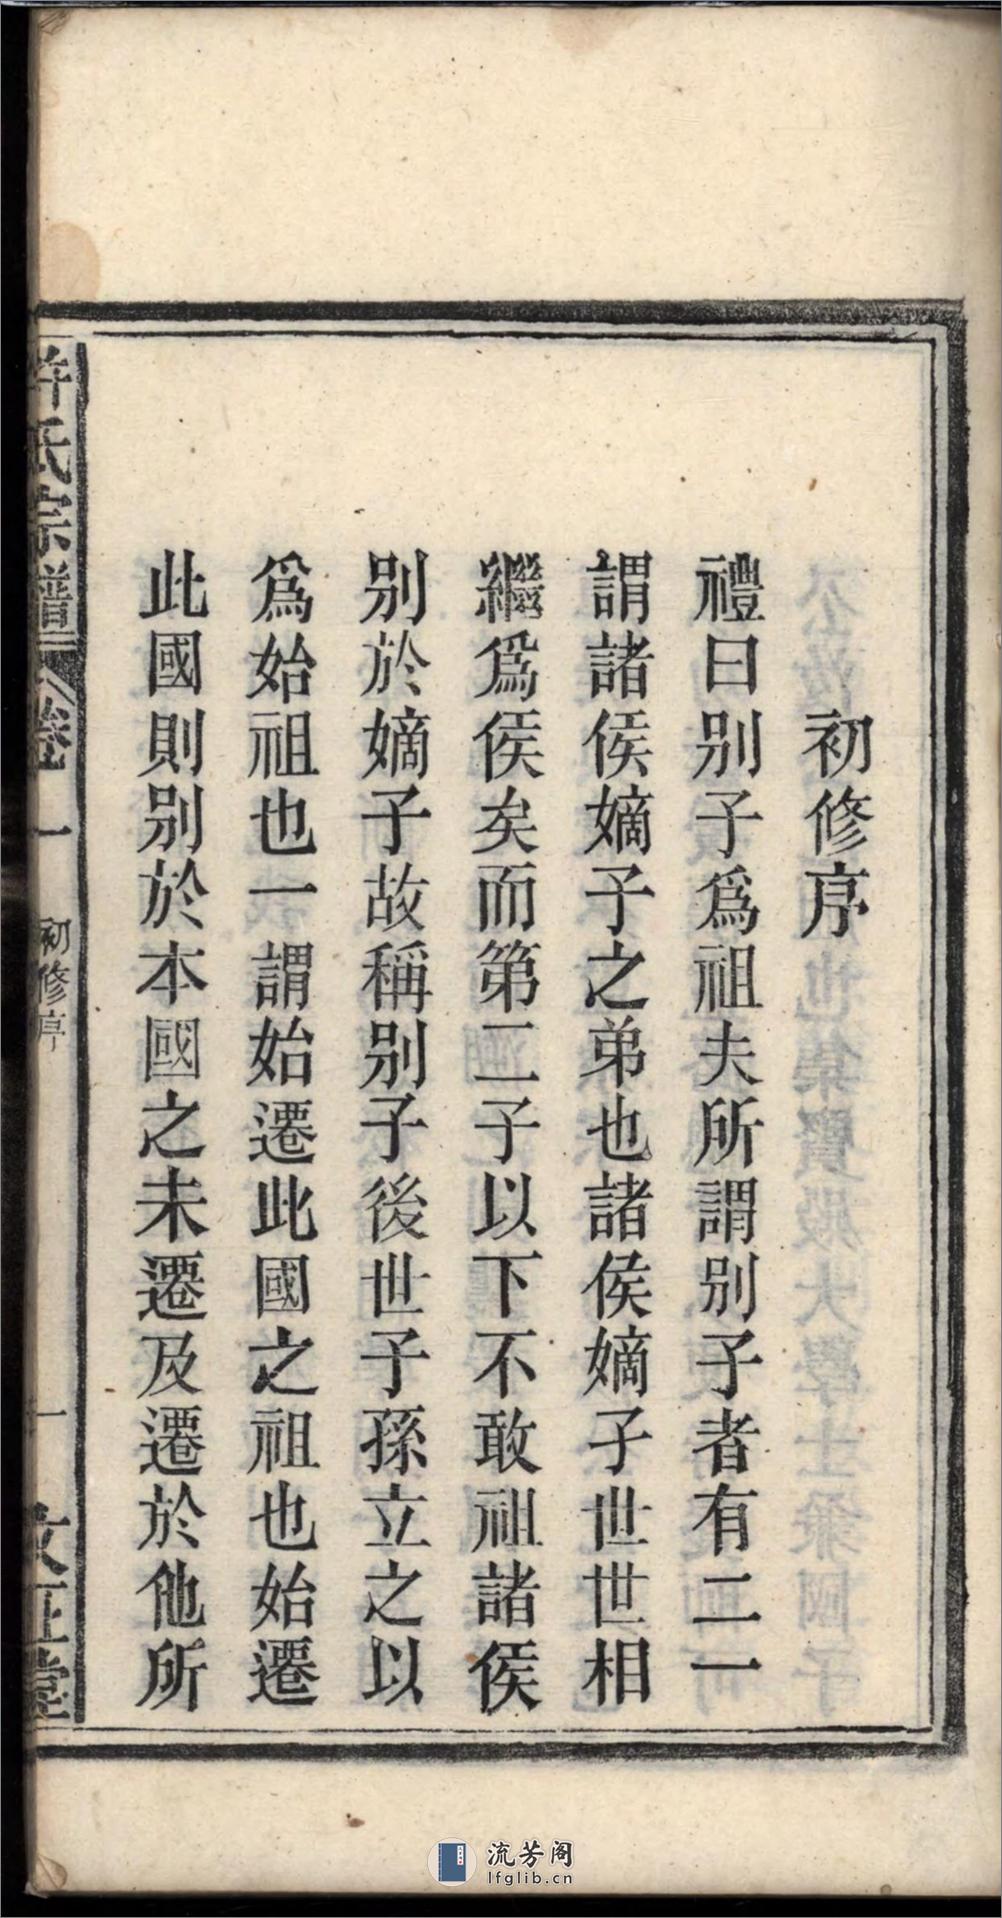 初修序
禮曰别子爲祖夫所謂别子者有二一
謂諸侯嫡子之弟也諸侯嫡子世世相
繼爲侯矣而第二子以下不敢祖諸侯
别於嫡子故稱别子後世子孫立之以
爲始祖也一謂始遷此國之祖也始遷
此國則别於本國之未遷及遷於他所
許氏宗譜 卷一 初修序 一 文正堂
流芳阁
lfglib.cn